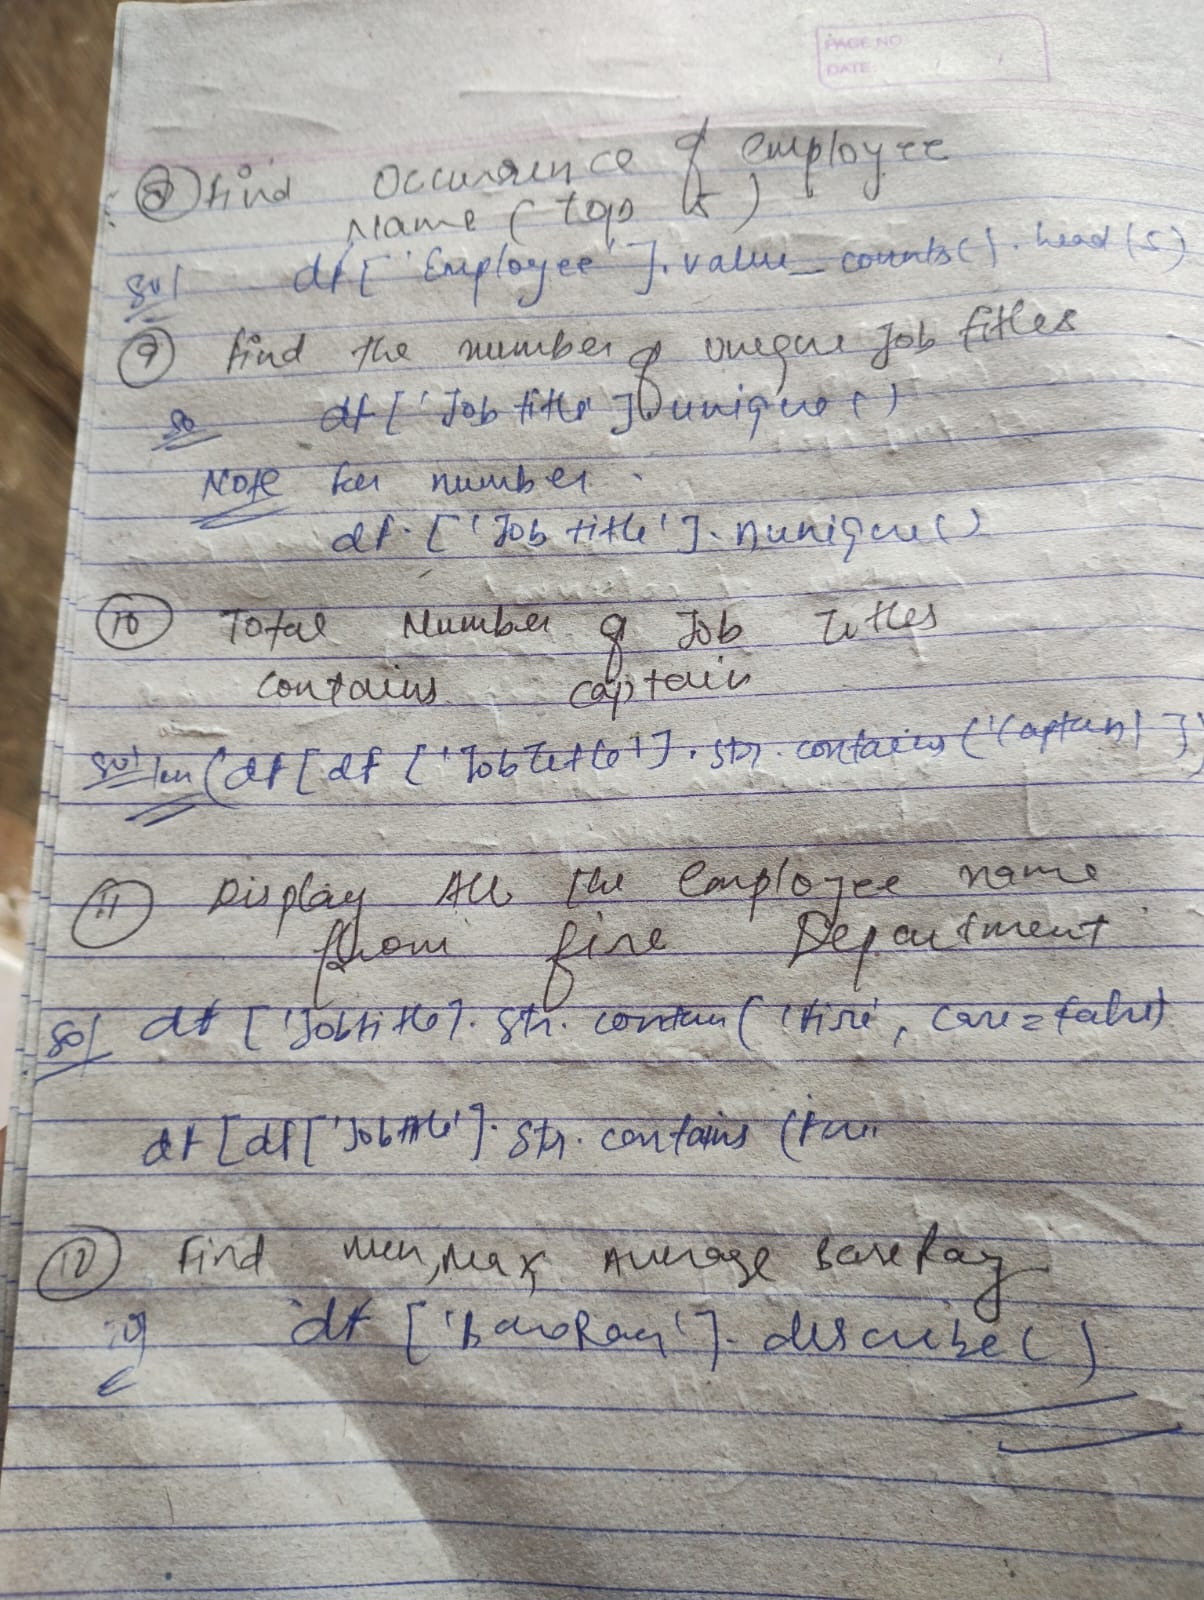 PAGE NO
DATE / /
8 find Occurrence of employee
Name ( top 5 )
sol df [ 'Employee' ]. value_counts( ). head (5)
9 find the number of unique Job titles
so df [ 'Job title' ]. unique ( )
Note for number.
df. [ 'Job title' ]. nunique ( )
10 Total Number of Job Titles
contains captain
sol len (df [ df [ 'JobTitle' ]. str. contains ( 'Captain' ) ]
11 Display All the Employee name
from fire Department
sol df [ 'Jobtitle]. str. contain ( 'fire', case=false)
df [df [ 'Jobtitle' ]. str. contains (
12 Find Min, Max, Average BasePay
df [ 'BasePay' ]. describe ( )